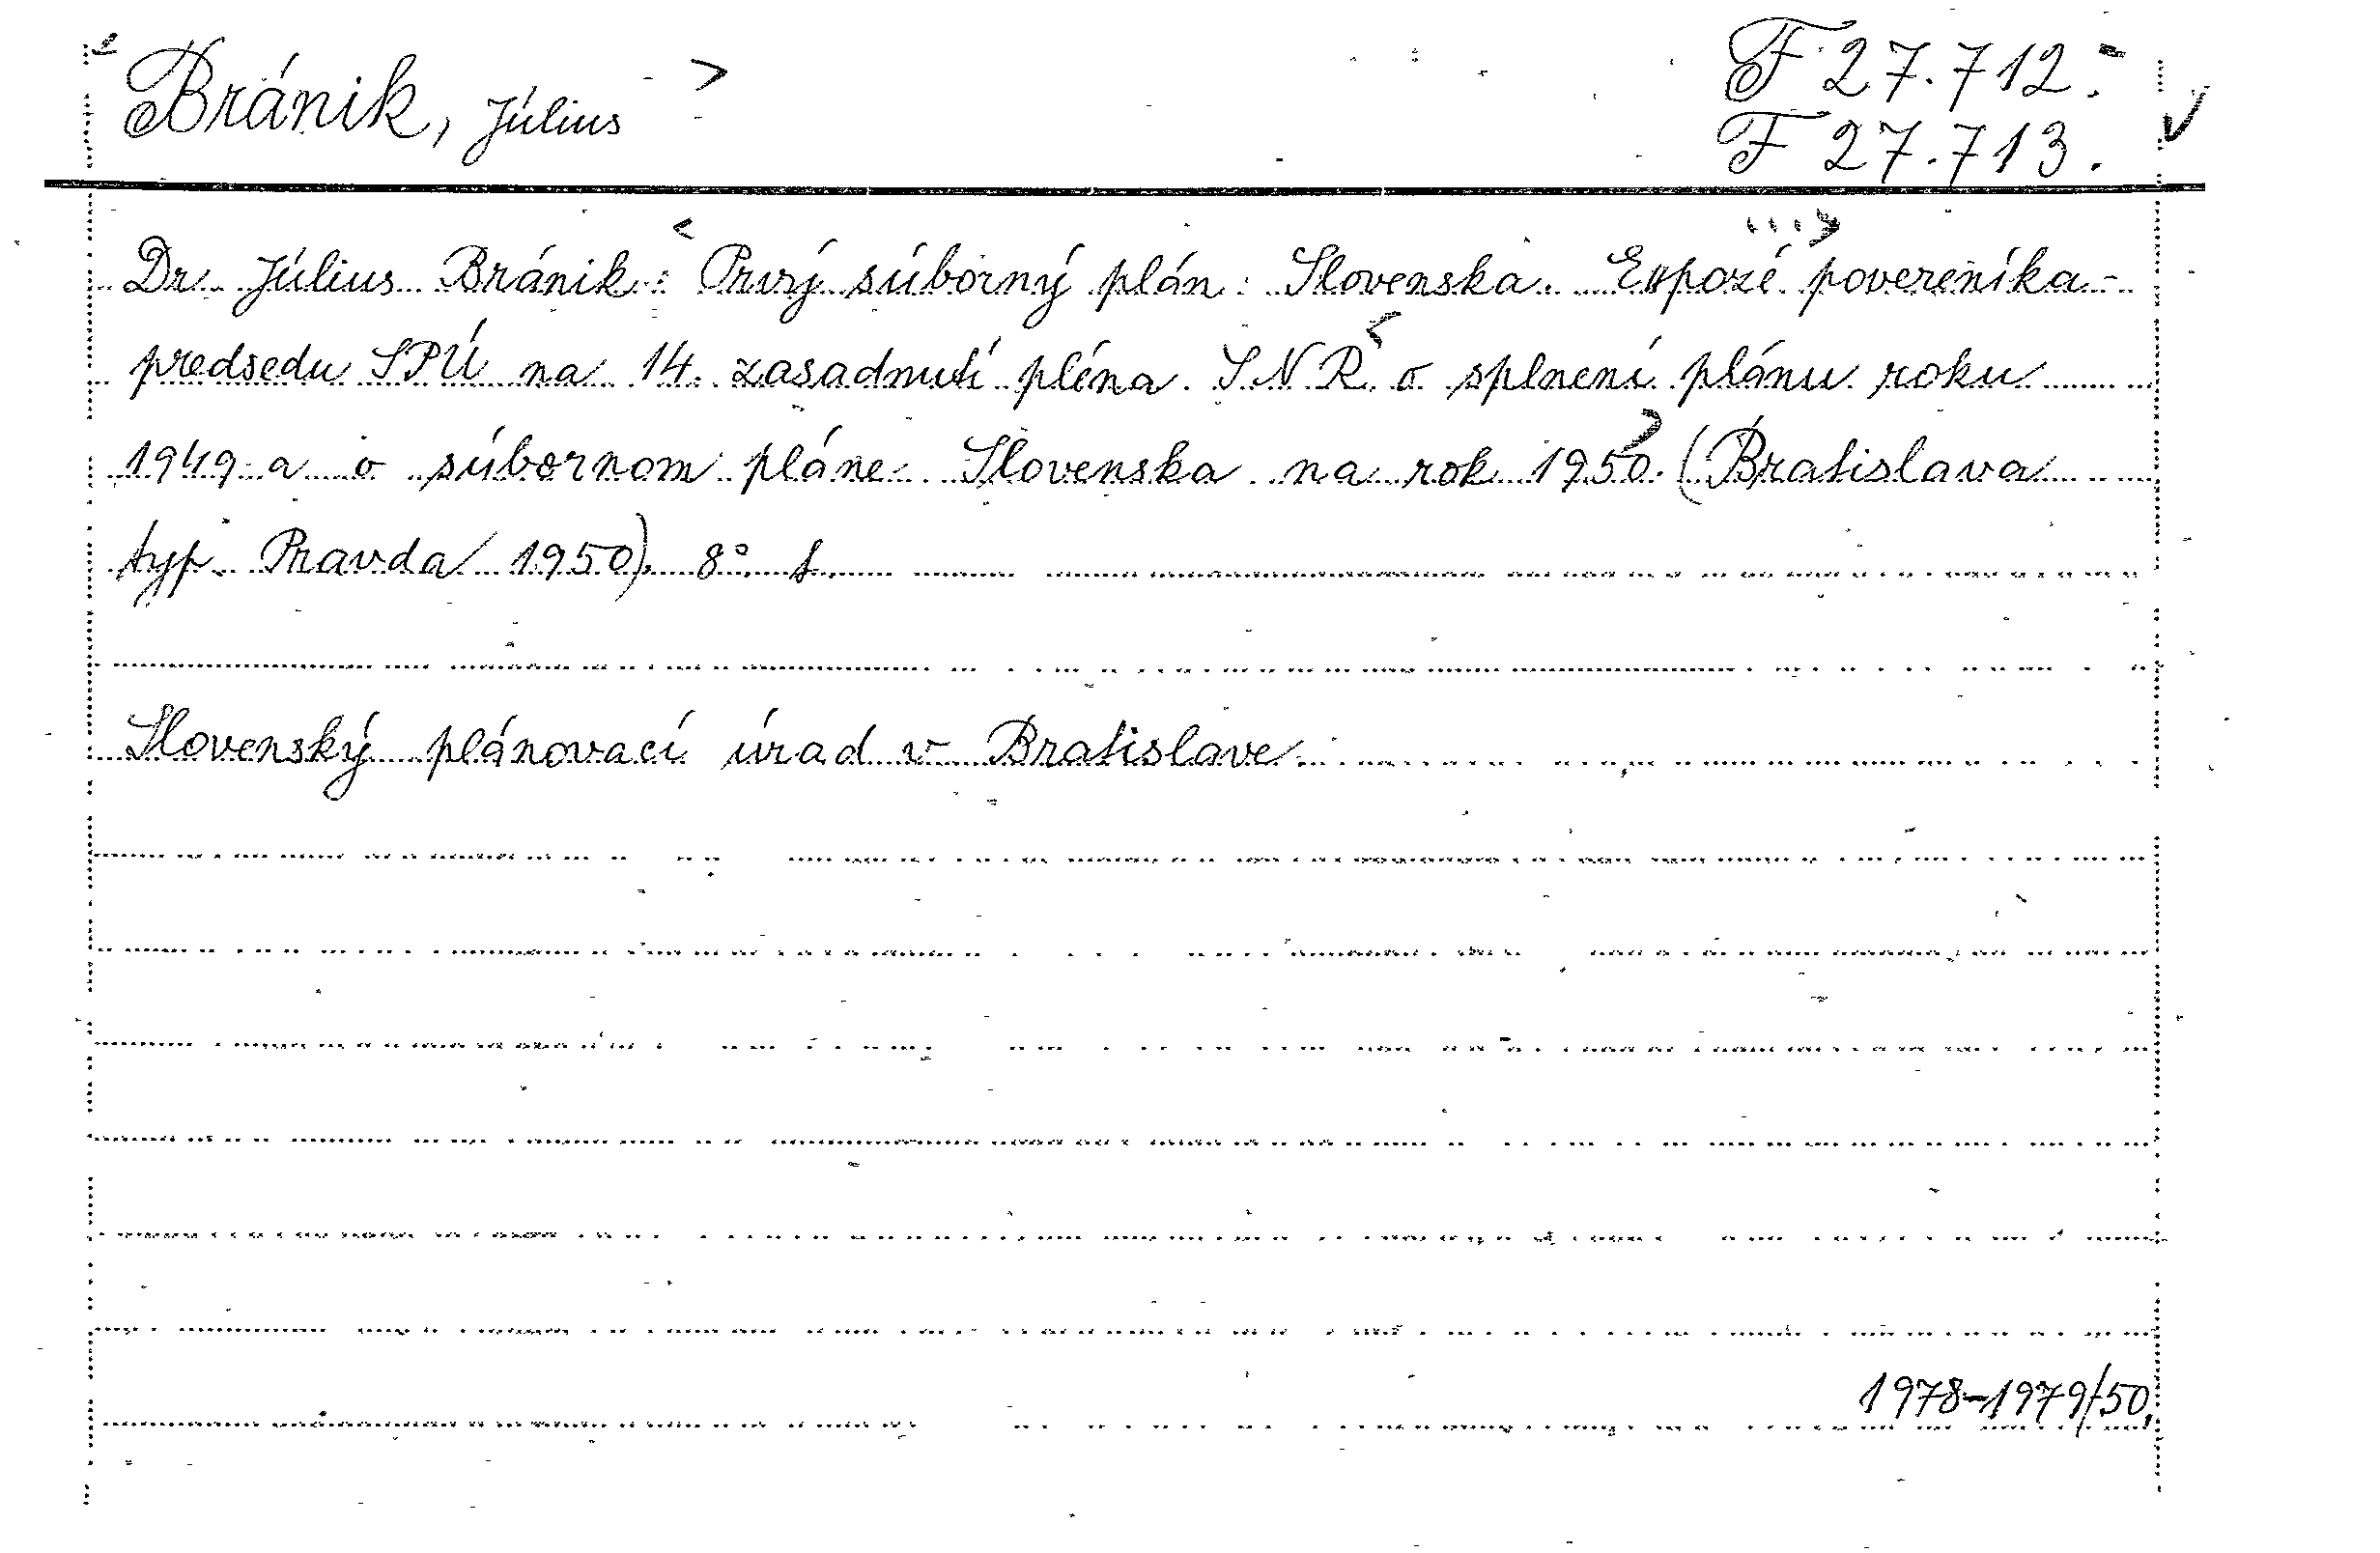 Bránik, Július
F 27.712.
F 27.713.
Dr. Július Bránik: Prvý súborný plán Slovenska. Expozé povereníka-
predsedu SPÚ na 14. zasadnutí pléna SNR o splnení plánu roku
1949 a o súbornom pláne Slovenska na rok 1950. (Bratislava
typ. Pravda 1950). 8°.
Slovenský plánovací úrad v Bratislave.
1978-1979/50.